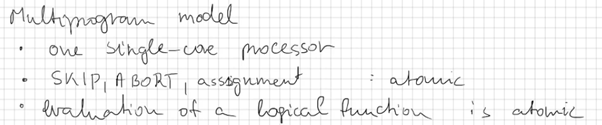 Multiprogram model
• one single-core processor
• SKIP, ABORT, assignment : atomic
• evaluation of a logical function is atomic